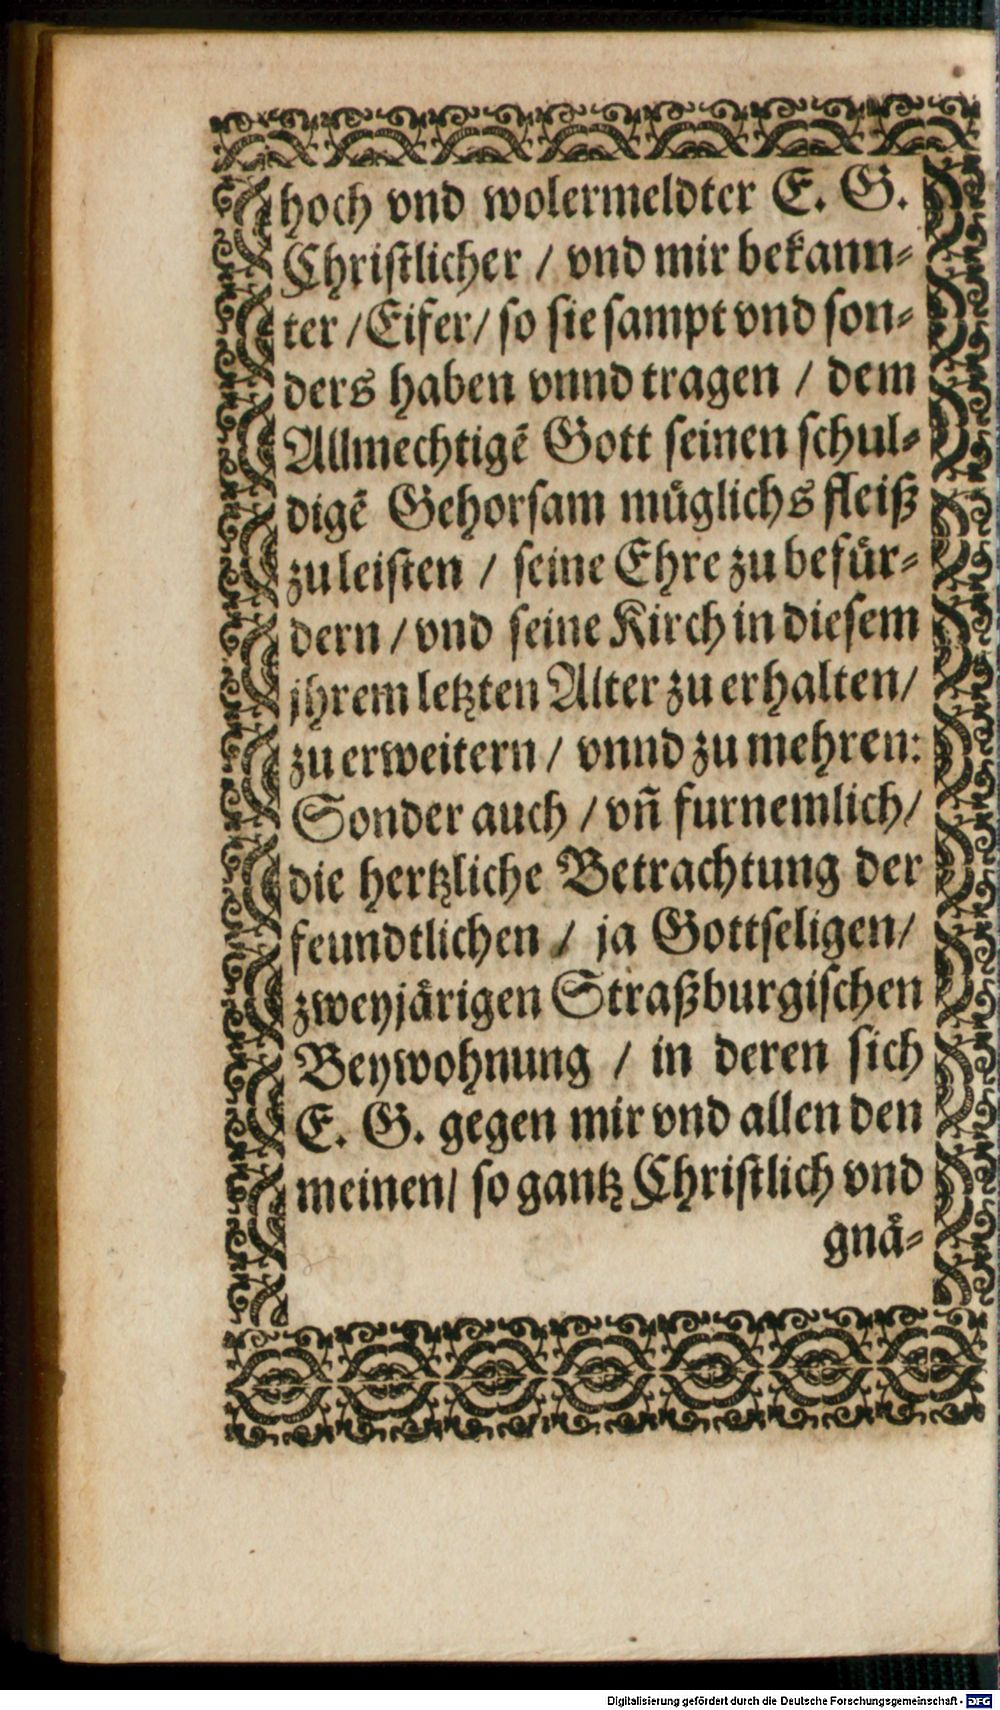 hoch vnd wolermeldter E. G.
Christlicher / vnd mir bekann⸗
ter / Eifer / so sie sampt vnd son⸗
ders haben vnnd tragen / dem
Allmechtigẽ Gott seinen schul⸗
digẽ Gehorsam muͤglichs fleiß
zu leisten / seine Ehre zu befuͤr⸗
dern / vnd seine Kirch in diesem
jhrem letzten Alter zu erhalten /
zu erweitern / vnnd zu mehren:
Sonder auch / vñ furnemlich /
die hertzliche Betrachtung der
feundtlichen / ja Gottseligen /
zweyjaͤrigen Straßburgischen
Beywohnung / in deren sich
E. G. gegen mir vnd allen den
meinen / so gantz Christlich vnd
gnaͤ⸗
Digitalisierung gefördert durch die Deutsche Forschungsgemeinschaft - DFG